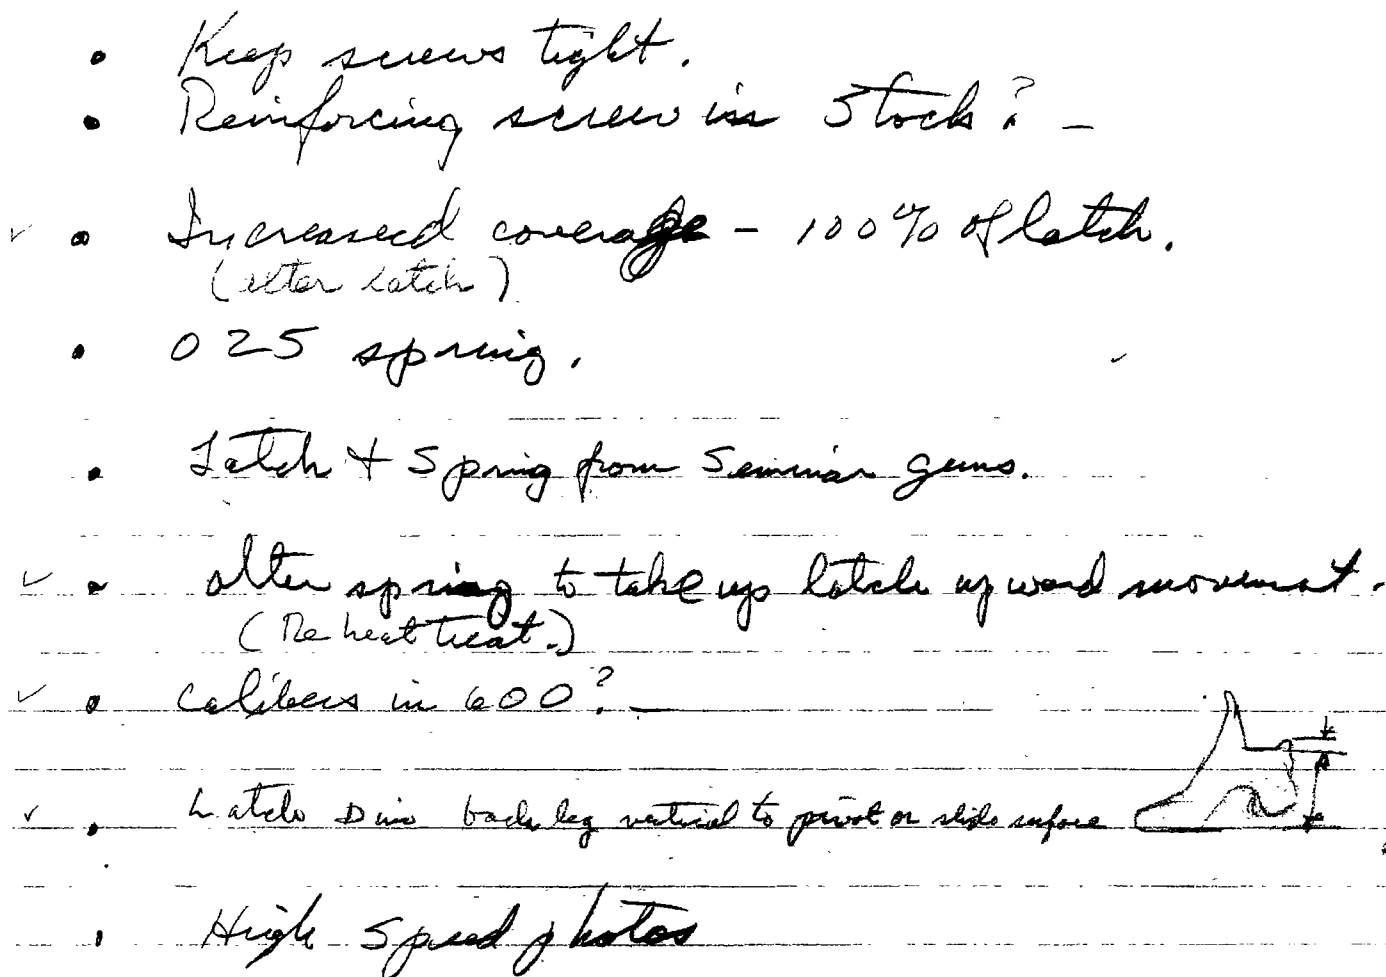 • Keep screws tight.
• Reinforcing screw in Stock? –
✓ • Increased coverage – 100% of latch.
(alter latch)
• 025 spring.
• Latch + Spring from Seminar guns.
✓ • alter spring to take up latch upward movement.
(Re heat treat.)
✓ • Calibers in 600? –
✓ • Latch Dim back leg vertical to pivot or slide surface
• High Speed photos